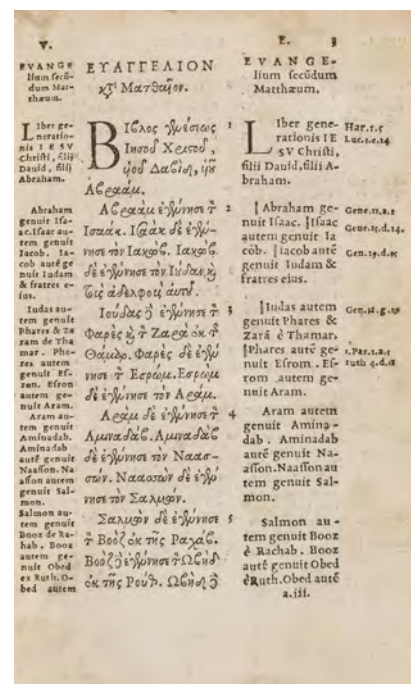 V.
EVANGE
lium secũ-
dum Mat-
thæum.
Liber ge-
neratio-
nis IESV
Christi, filij
Dauid, filij
Abraham.
Abraham
genuit Isa-
ac. Isaac au-
tem genuit
Iacob. Ia-
cob autẽ ge
nuit Iudam
& fratres e-
ius.
Iudas au-
tem genuit
Phares & Za
ram de Tha
mar. Pha-
res autem
genuit Es-
ron. Esron
autem ge-
nuit Aram.
Aram au-
tem genuit
Aminadab.
Aminadab
autẽ genuit
Naasson. Na
asson autem
genuit Sal-
mon.
Salmon au-
tem genuit
Booz de Ra-
hab. Booz
autem ge-
nuit Obed
ex Ruth. O-
bed autem
ΕΥΑΓΓΕΛΙΟΝ
κατὰ Ματθαῖον.
Βίβλος γενέσεως
Ἰησοῦ Χριστοῦ,
υἱοῦ Δαβὶδ, υἱοῦ
Ἀβραάμ.
Ἀβραὰμ ἐγέννησε τὸν
Ἰσαάκ. Ἰσαὰκ δὲ ἐγέν-
νησε τὸν Ἰακώβ. Ἰακὼβ
δὲ ἐγέννησε τὸν Ἰούδαν καὶ
τοὺς ἀδελφοὺς αὐτοῦ.
Ἰούδας δὲ ἐγέννησε τὸν
Φαρὲς καὶ τὸν Ζαρὰ ἐκ τῆς
Θάμαρ. Φαρὲς δὲ ἐγέν
νησε τὸν Ἐσρώμ. Ἐσρὼμ
δὲ ἐγέννησε τὸν Ἀράμ.
Ἀρὰμ δὲ ἐγέννησε τὸν
Ἀμιναδάβ. Ἀμιναδὰβ
δὲ ἐγέννησε τὸν Ναασ-
σών. Ναασσὼν δὲ ἐγέν
νησε τὸν Σαλμών.
Σαλμὼν δὲ ἐγέννησε
τὸν Βοὸζ ἐκ τῆς Ῥαχάβ.
Βοὸζ δὲ ἐγέννησε τὸν Ὠβὴδ
ἐκ τῆς Ῥούθ. Ὠβὴδ δὲ
1
2
3
4
5
E. 3
EVANGE-
lium secũdum
Matthæum.
Liber gene-
rationis IE
SV Christi,
filii Dauid, filii A-
braham.
Abraham ge-
nuit Isaac. Isaac
autem genuit Ia
cob. Iacob autẽ
genuit Iudam &
fratres eius.
Iudas autem
genuit Phares &
Zarã è Thamar.
Phares autẽ ge-
nuit Esrom. Es-
rom autem ge-
nuit Aram.
Aram autem
genuit Amina-
dab. Aminadab
autẽ genuit Na-
asson. Naasson au
tem genuit Sal-
mon.
Salmon au-
tem genuit Booz
è Rachab. Booz
autẽ genuit Obed
è Ruth. Obed autẽ
a.iii.
Luc.3.e.14
Gene.21.a.2
Gene.25.d.24.
Gen.29.d.35
Gen.38.g.29
1.Par.2.a.5
ruth 4.d.18